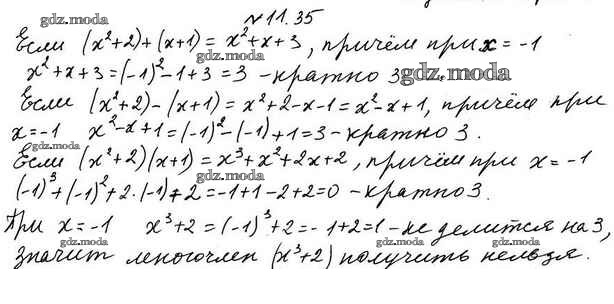 №11.35
gdz.moda
Если (x²+2)+(x+1)= x²+x+3, причём при x=-1
x²+x+3=(-1)²-1+3=3 - кратно 3
gdz.moda
Если (x²+2)-(x+1)=x²+2-x-1=x²-x+1, причём при
gdz.moda
x=-1 x²-x+1=(-1)²-(-1)+1=3 - кратно 3.
gdz.moda
Если (x²+2)(x+1)=x³+x²+2x+2, причём при x=-1
gdz.moda
(-1)³+(-1)²+2·(-1)+2=-1+1-2+2=0 - кратно 3.
gdz.moda
При x=-1 x³+2=(-1)³+2=-1+2=1 - не делится на 3,
gdz.moda gdz.moda gdz.moda
значит многочлен (x³+2) получить нельзя.